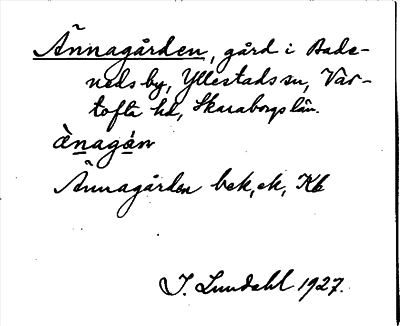 Ännagården, gård i Bade-
neds by, Yllestads sn, Var-
tofta hd, Skaraborgs län.
ànagán
Ännagården bek, ek, Kb
I. Lundahl 1927.